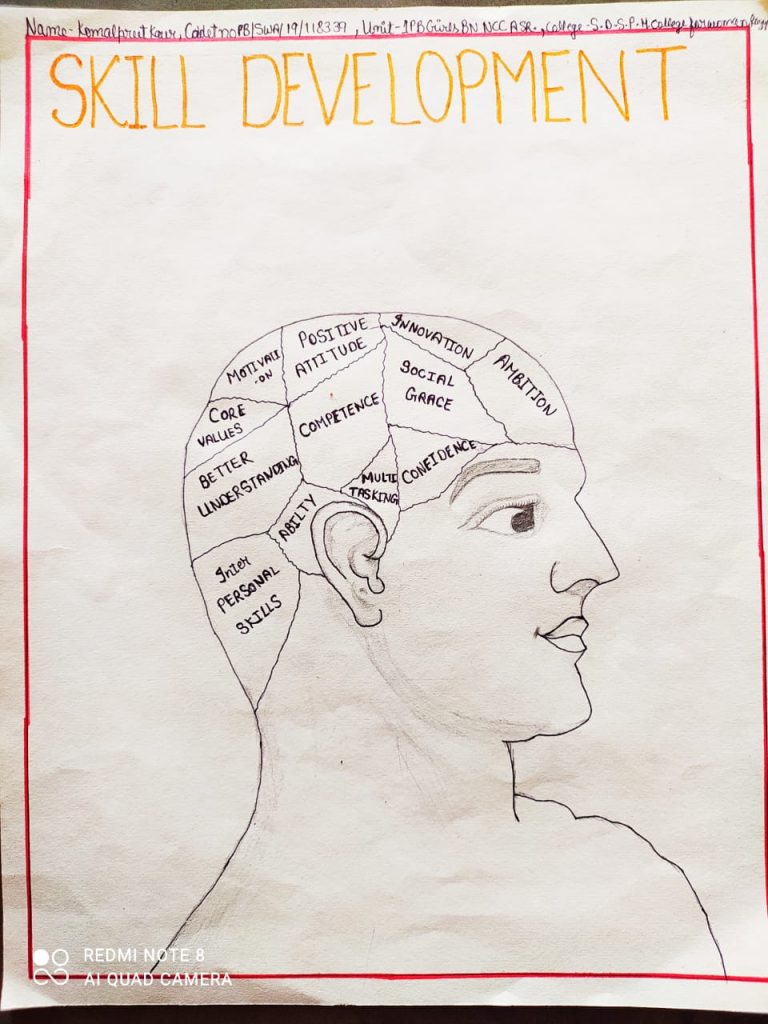 Name- Komalpreet Kaur, Cadet no PB/SWA/19/118339, Unit- 1PB Girls BN NCC ASR., College- S.D.S.P.M. College for women,
SKILL DEVELOPMENT
MOTIVATI
-ON
POSITIVE
ATTITUDE
INNOVATION
AMBITION
CORE
VALUES
COMPETENCE
SOCIAL
GRACE
BETTER
UNDERSTANDING
ABILTY
MULTI
TASKING
CONFIDENCE
Inter
PERSONAL
SKILLS
REDMI NOTE 8
AI QUAD CAMERA